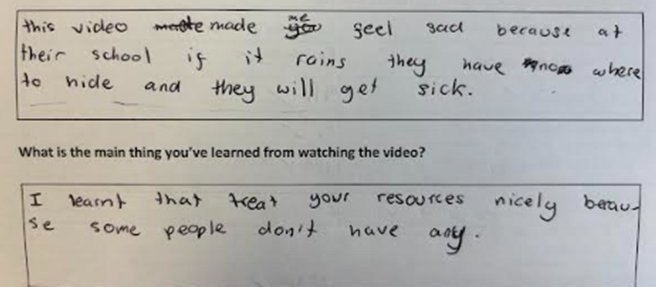 this video made me feel sad because at
their school if it rains they have no where
to hide and they will get sick.
What is the main thing you've learned from watching the video?
I learnt that treat your resources nicely beau-
se some people don't have any.